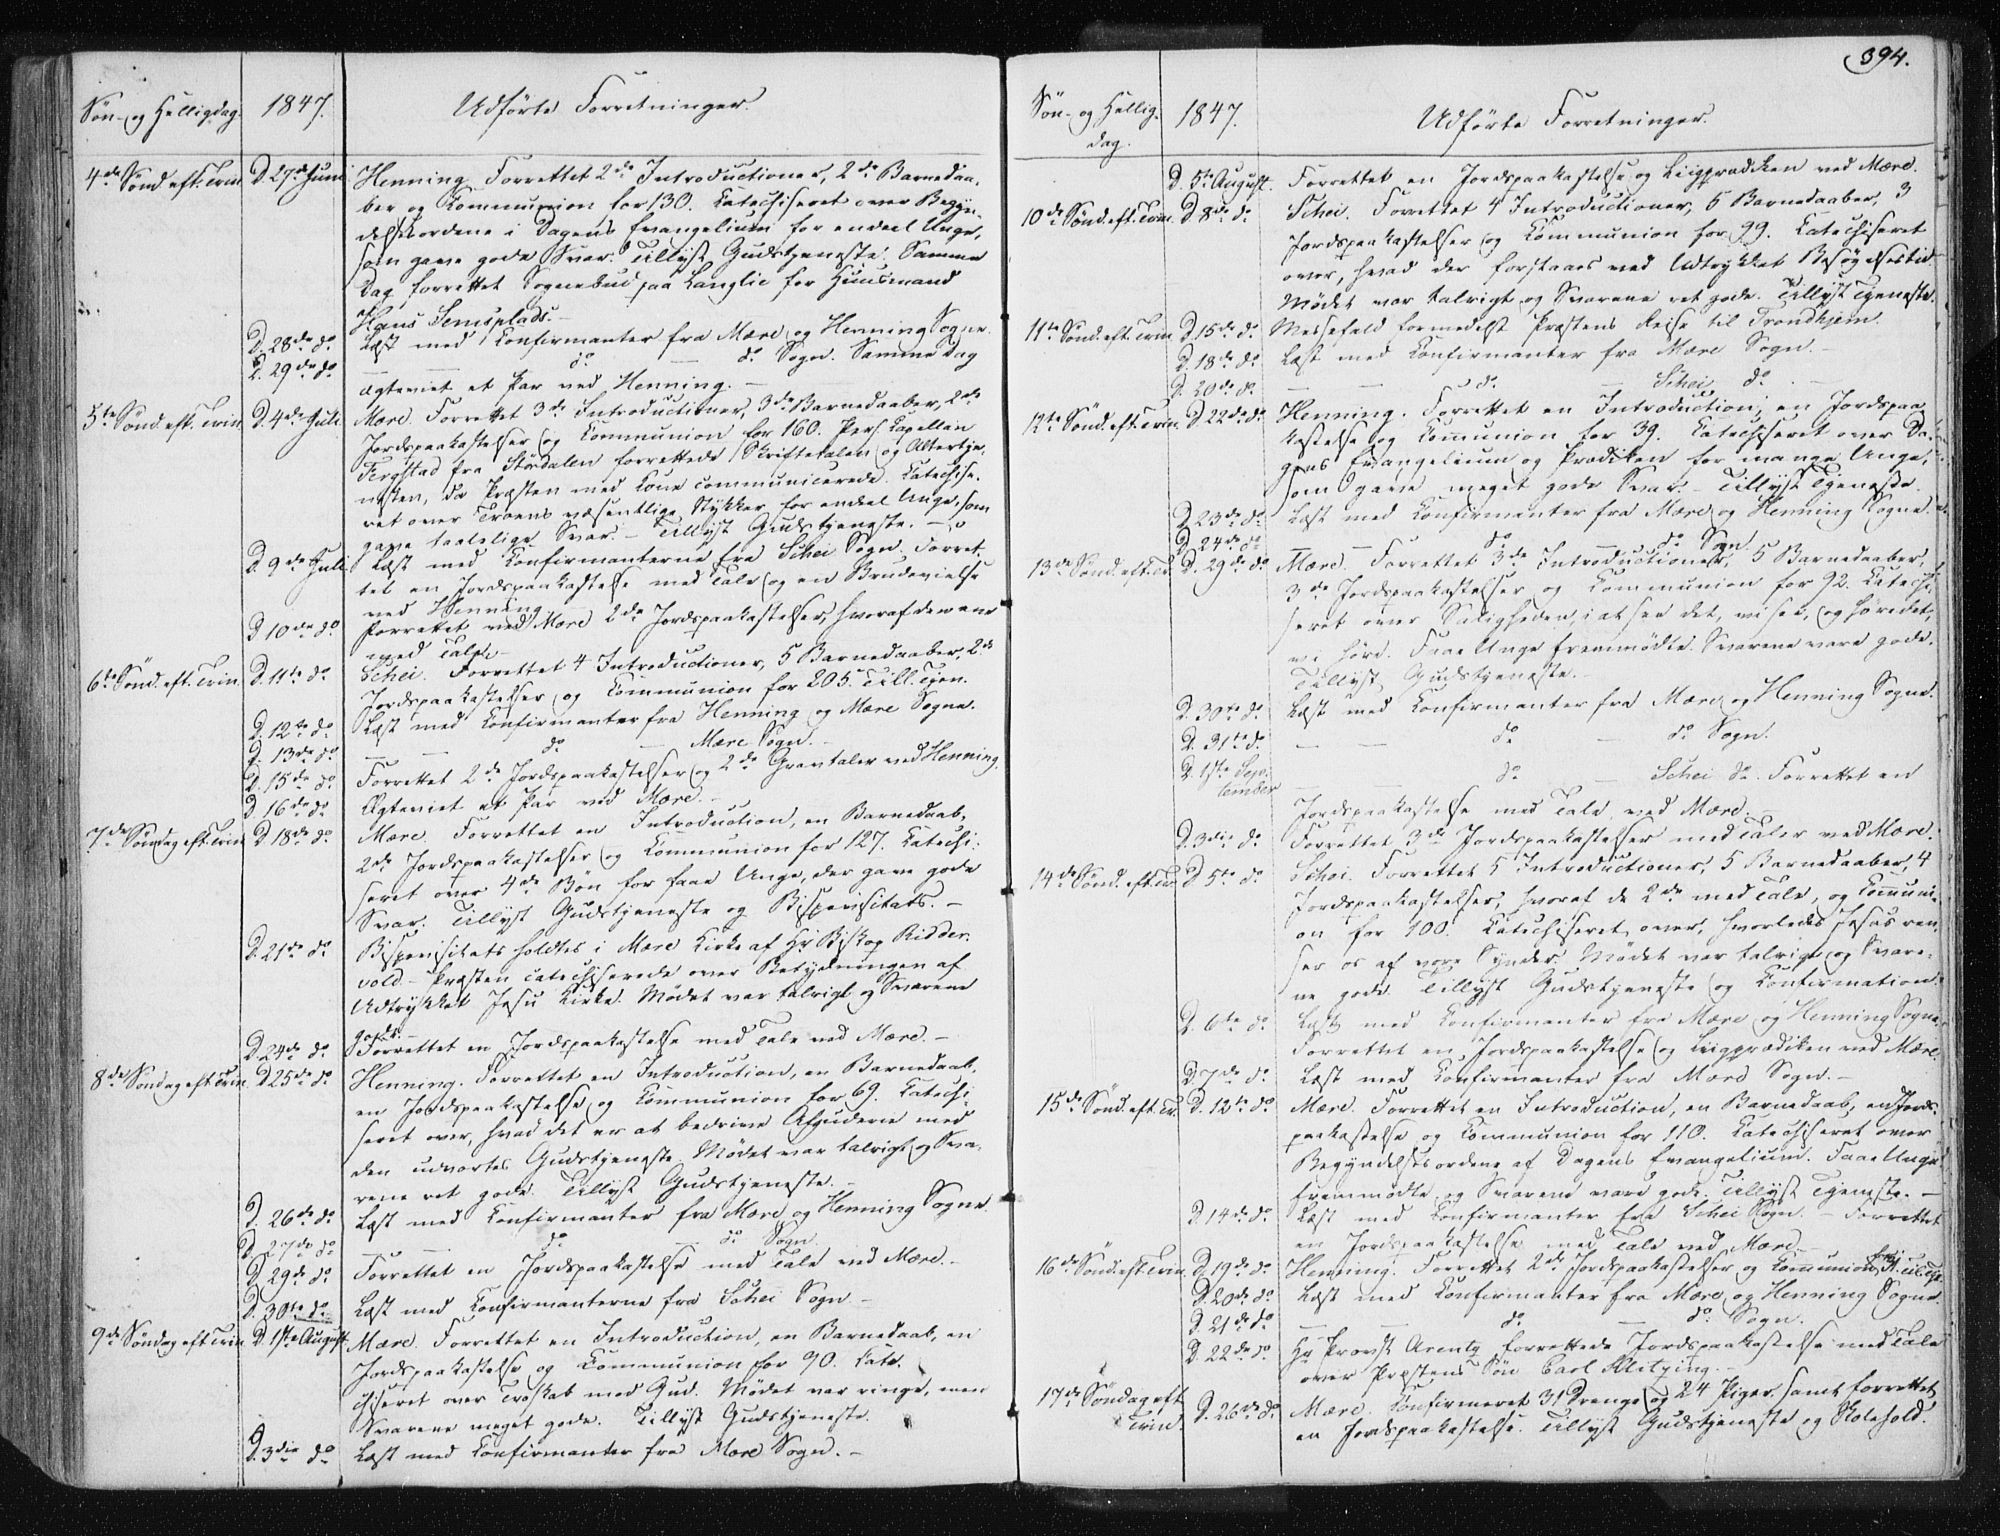 394.
Søn- og Helligdag. 1847. Udførte Forretninger.
4de Sønd. eft. Trin. D. 27de Juni Henning. Forrettet 2de Introductioner, 2de Barnedaa-
ber og Kommunion for 130. Katechiseret over Begyn-
delsesordene i Dagens Evangelium for endeel Unge,
som gave gode Svar. Tillyst Gudstjeneste. Samme
Dag forrettet Sognebud paa Langlie for Huusmand
Hans Semsplads.-
D. 28de do Læst med Confirmanter fra Mære og Henning Sogne.
D. 29de do — do — do Sogn. Samme Dag
ægteviet et Par ved Henning.-
5te Sønd. eft. Trin. D. 4de Juli. Mære. Forrettet 3de Introductioner, 3de Barnedaaber, 2de
Jordspaakastelser og Kommunion for 160. Pers. Capellan
Fergstad fra Størdalen forrettede Skriftetalen og Altertje-
nesten, da Præsten med Kone communicerede. Katechise-
ret over Troens væsentlige Stykker for endeel Unge, som
gave taalelige Svar.- Tillyst Gudstjeneste.-
D. 9de Juli Læst med Confirmanterne fra Schei Sogn. Forret-
tet en Jordspaakastelse med Tale og en Brudevielse
ved Henning.-
D 10de do Forrettet ved Mære 2de Jordspaakastelser, hvoraf den ene
med Tale.-
6te Sønd. eft. Trin. D. 11te do Schei. Forrettet 4 Introductioner, 5 Barnedaaber, 2de
Jordspaakastelser og Kommunion for 205. Till. Tjen.
D. 12te do Læst med Confirmanter fra Henning og Mære Sogne.
D. 13de do — do — Mære Sogn.-
D. 15de do Forrettet 2de Jordspaakastelser og 2de Gravtaler ved Henning.
D 16de do Ægteviet et Par ved Mære.-
7de Søndag eft. Trin D 18de do Mære. Forrettet en Introduction, en Barnedaab,
2de Jordspaakastelser og Kommunion for 127. Katechi-
seret over 4de Bøn for faae Unge, der gave gode
Svar. Tillyst Gudstjeneste og Bispevisitats.-
D. 21de do Bispevisitats holdtes i Mære Kirke af Hr Biskop Ridder-
vold.- Præsten catechiserede over Betydningen af
Udtrykket Jesu Kirke. Mødet var talrigt og Svarene
gode.-
D. 24de do Forrettet en Jordspaakastelse med Tale ved Mære.-
8de Søndag eft Trin D 25de do Henning. Forrettet en Introduction, en Barnedaab,
en Jordspaakastelse og Kommunion for 69. Katechi-
seret over, hvad det er at bedrive Afguderie med
den udvortes Gudstjeneste. Mødet var talrigt og Sva-
rene ret gode. Tillyst Gudstjeneste.-
D. 26de do Læst med Confirmanter fra Mære og Henning Sogne.
D. 27de do — do — do Sogn.
D 29de do Forrettet en Jordspaakastelse med Tale ved Mære.-
D. 30te do Læst med Confirmanterne fra Schei Sogn.-
9de Søndag eft Trin D 1ste August Mære. Forrettet en Introduction, en Barnedaab, en
Jordspaakastelse og Kommunion for 90. Kate-
chiseret over Troskab mod Gud. Mødet var ringe, men
Svarene meget gode. Tillyst Gudstjeneste.
D. 3die do Læst med Confirmanter fra Mære Sogn.-
Søn- og Hellig-
dag. 1847. Udførte Forretninger.
D. 5te August. Forrettet en Jordspaakastelse og Liigprædiken ved Mære.
10de Sønd. eft. Trin. D 8de do Schei. Forrettet 4 Introductioner, 5 Barnedaaber, 3
Jordspaakastelser og Kommunion for 99. Katechiseret
over, hvad der forstaaes ved Udtrykket Besøgelsestid.
Mødet var talrigt og Svarene ret gode. Tillyst Tjeneste.
11te Sønd. eft. Trin D 15de do. Messefald formedelst Præstens Reise til Trondhjem.
D. 18de do. Læst med Confirmanter fra Mære Sogn.-
D. 20de do. — do. — Schei do.-
12te Sønd. eft. Trin D 22de do. Henning. Forrettet en Introduction, en Jordspaa-
kastelse og Kommunion for 39. Catechiseret over Da-
gens Evangelium og Prædiken for mange Unge,
som gave meget gode Svar.- Tillyst Tjeneste.
D. 23de do Læst med Confirmanter fra Mære og Henning Sogne.
D. 24de do — do — do Sogn
13de Sønd. eft. Tr. D. 29de do Mære. Forrettet 3de Introductioner, 5 Barnedaaber,
3de Jordspaakastelser og Kommunion for 92. Katechi-
seret over Saligheden, i at see det, vi see, og høre det,
vi høre. Faae Unge fremmødte. Svarene vare gode.
Tillyst Gudstjeneste.-
D. 30te do. Læst med Confirmanter fra Mære og Henning Sogne.
D. 31te do. — do — do Sogn.
D. 1ste Sep-
tember — do — Schei do. Forrettet en
Jordspaakastelse med Tale ved Mære.-
D. 3die do. Forrettet 3de Jordspaakastelser med Taler ved Mære.
14de Sønd. eft. Tr. D 5te do Schei. Forrettet 5 Introductioner, 5 Barnedaaber, 4
Jordspaakastelser, hvoraf de 2de med Tale, og Kommuni-
on for 100. Katechiseret over, hvorledes Jesus ren-
ser os af vore Synder. Mødet var talrigt og Svare-
ne gode. Tillyst Gudstjeneste og Confirmation.
D. 6te do. Læst med Confirmanter fra Mære og Henning Sogne.
Forrettet en Jordspaakastelse og Liigprædiken ved Mære.
D. 7de do. Læst med Confirmanter fra Mære Sogn.-
15de Sønd. eft. Tr. D. 12te do Mære. Forrettet en Introduction, en Barnedaab, en Jords-
paakastelse og Kommunion for 110. Katechiseret over
Begyndelsesordene af Dagens Evangelium. Faae Unge
fremmødte og Svarene vare gode. Tillyst Tjeneste.-
D. 14de do. Læst med Confirmanter fra Schei Sogn.- Forrettet
en Jordspaakastelse med Tale ved Mære.
16de Sønd. eft. Trin. D. 19de do Henning. Forrettet 2de Jordspaakastelser og Kommunion
D. 20de do. Læst med Confirmanter fra Mære og Henning Sogne.
D. 21de do — do. — do. Sogn.
D. 22de do. Hr Provst Arentz forrettede Jordspaakastelse med Tale
over Præstens Søn Carl Kletzing.-
17de Søndag eft
Trin. D. 26de do. Mære. Confirmeret 31 Drenge og 24 Piger samt forrettet
en Jordspaakastelse. Tillyst Gudstjeneste og Skolehold.